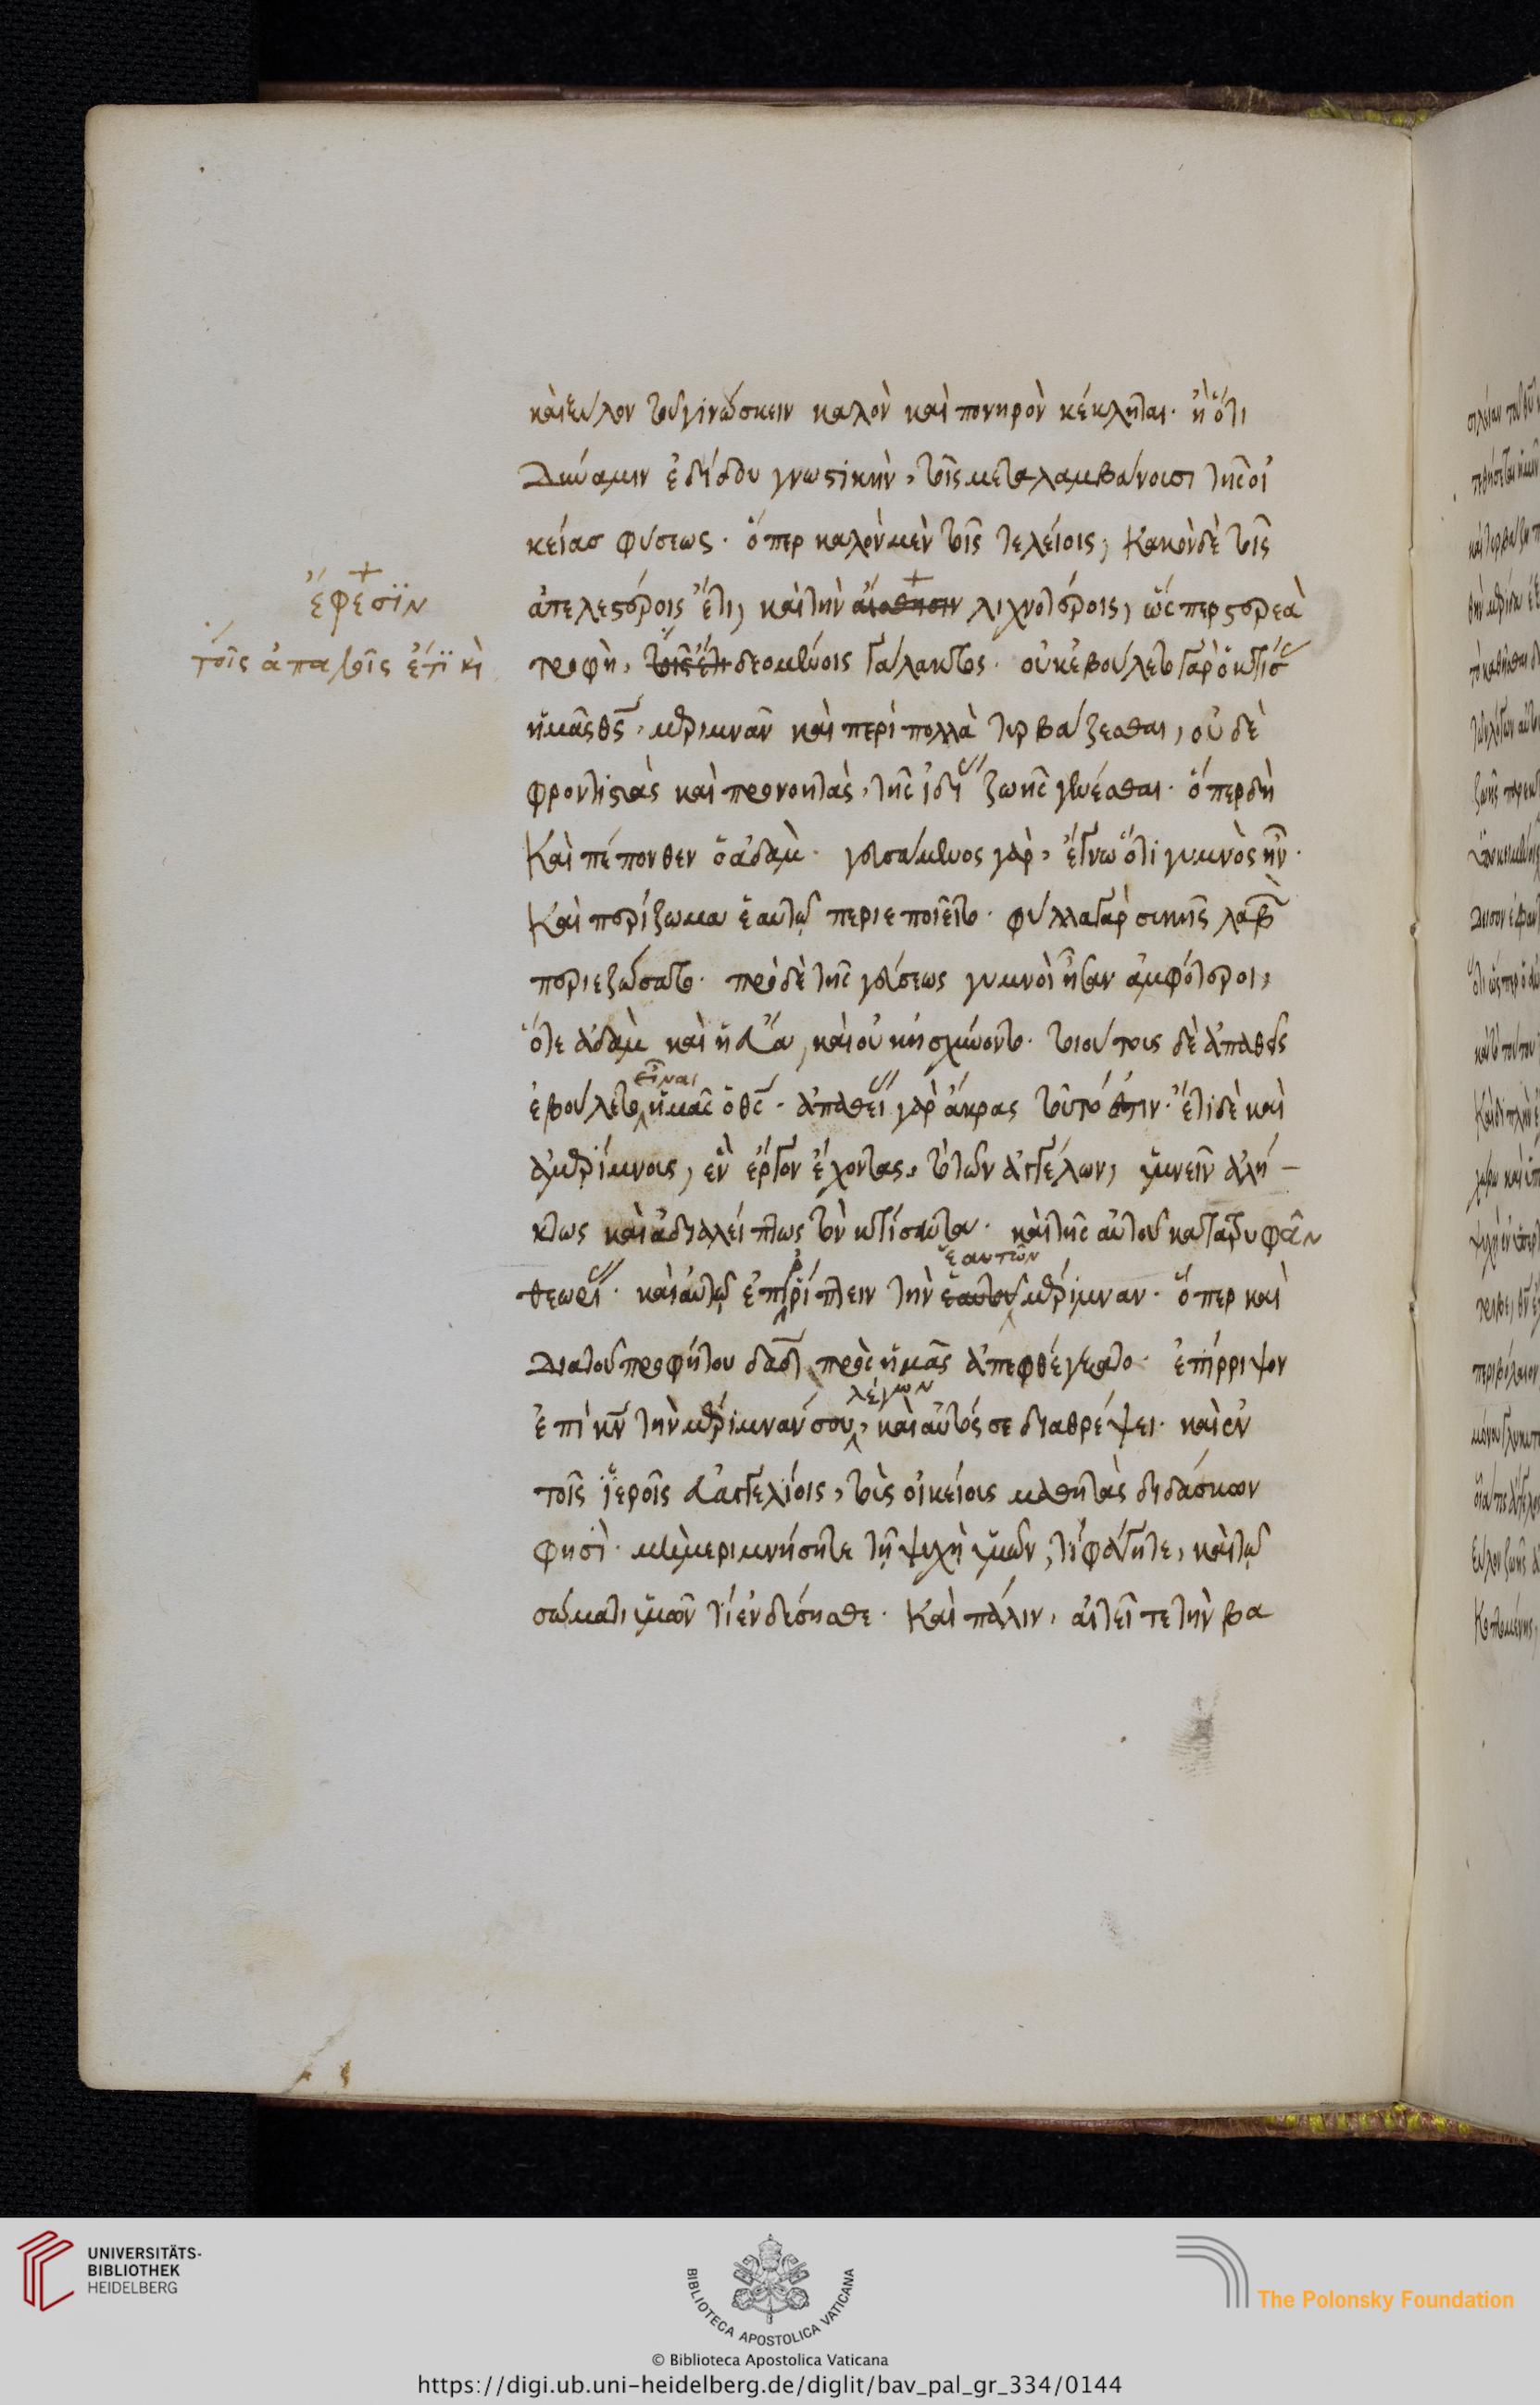 καὶ ξύλον τοῦ γινώσκειν καλὸν καὶ πονηρὸν κέκληται· ἢ ὅτι
Δύναμιν ἐδίδου γνωστικὴν, τοῖς μεταλαμβάνουσι τῆς οἰ
κείας φύσεως· ὅπερ καλὸν μὲν τοῖς τελείοις, Κακὸν δὲ τοῖς
ἔφεσϊν
ἀτελεστέροις ἔτι, καὶ τὴν αἴσθησιν λιχνοτέροις, ὥσπερ στερεὰ
τοῖς ἁπαλοῖς ἔτϊ κὶ
τροφὴ, τοῖς ἔτι δεομένοις γάλακτος· οὐκ ἐβούλετο γὰρ ὁ κτίσ
ἡμᾶς θς, μεριμνᾶν καὶ περὶ πολλὰ τυρβάζεσθαι, οὐδὲ
φροντιστὰς καὶ προνοητὰς, τῆς ἰδί ζωῆς γενέσθαι· ὅπερ δὴ
Καὶ πέπονθεν ὁ ἀδὰμ· γευσάμενος γὰρ, ἔγνω ὅτι γυμνὸς ἦν·
Καὶ περίζωμα ἑαυτῷ περιεποιεῖτο· φύλλα γὰρ συκῆς λαβ
περιεζώσατο· πρὸ δὲ τῆς γεύσεως γυμνοὶ ἦσαν ἀμφότεροι,
ὅτε ἀδὰμ καὶ ἡ εὔα, καὶ οὐκ ἠσχύνοντο· τοιούτους δὲ ἀπαθεῖς
εἶναι
ἐβούλετο ἡμᾶς ὁ θς· ἀπαθεί γὰρ ἄκρας τοῦτό ἐστιν· ἔτι δὲ καὶ
ἀμερίμνους, ἓν ἔργον ἔχοντας, τὸ τῶν ἀγγέλων, ὑμνεῖν ἀλή-
κτως καὶ ἀδιαλείπτως τὸν κτίσαντα· καὶ τῆς αὐτοῦ κατατρυφᾶν
ἑαυτῶν
θεωρί· καὶ αὐτῷ ἐπιρρίπτειν τὴν ἑαυτοῦ μέριμναν· ὅπερ καὶ
Διὰ τοῦ προφήτου δαδ, πρὸς ἡμᾶς ἀπεφθέγξατο· ἐπίρριψον
λέγων
ἐπὶ κν τὴν μέριμνάν σου, καὶ αὐτός σε διαθρέψει· καὶ ἐν
τοῖς ἱεροῖς εὐαγγελίοις, τοὺς οἰκείους μαθητὰς διδάσκων
φησὶ· μὴ μεριμνήσητε τῇ ψυχῇ ὑμῶν, τί φάγητε, καὶ τῷ
σώματι ὑμῶν τί ἐνδύσησθε· Καὶ πάλιν, αἰτεῖτε τὴν βα
UNIVERSITÄTS-
BIBLIOTHEK
HEIDELBERG
BIBLIOTECA APOSTOLICA VATICANA
The Polonsky Foundation
© Biblioteca Apostolica Vaticana
https://digi.ub.uni-heidelberg.de/diglit/bav_pal_gr_334/0144